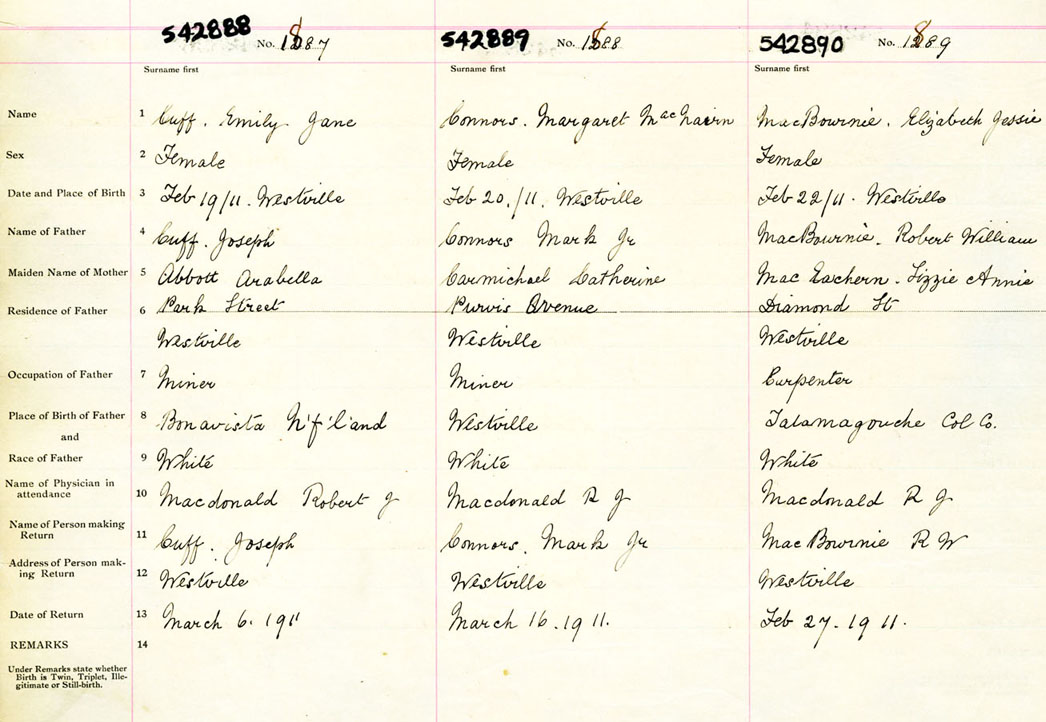 542888 No. 1887 542889 No. 1888 542890 No. 1889
Surname first Surname first Surname first
Name 1 Cuff. Emily Jane Connors. Margaret MacNairn MacBournie. Elizabeth Jessie
Sex 2 Female Female Female
Date and Place of Birth 3 Feb 19/11. Westville Feb 20./11. Westville Feb 22/11. Westville
Name of Father 4 Cuff. Joseph Connors Mark Jr MacBournie. Robert William
Maiden Name of Mother 5 Abbott Arabella Carmichael Catherine Mac Eachern. Lizzie Annie
Residence of Father 6 Park Street Purvis Avenue Diamond St
Westville Westville Westville
Occupation of Father 7 Miner Miner Carpenter
Place of Birth of Father 8 Bonavista N'f'l'and Westville Tatamagouche Col Co.
and
Race of Father 9 White White White
Name of Physician in
attendance 10 Macdonald Robert J Macdonald R J Macdonald R J
Name of Person making
Return 11 Cuff. Joseph Connors. Mark Jr MacBournie R W
Address of Person mak-
ing Return 12 Westville Westville Westville
Date of Return 13 March 6. 1911 March 16. 1911. Feb 27. 1911.
REMARKS 14
Under Remarks state whether
Birth is Twin, Triplet, Ille-
gitimate or Still-birth.